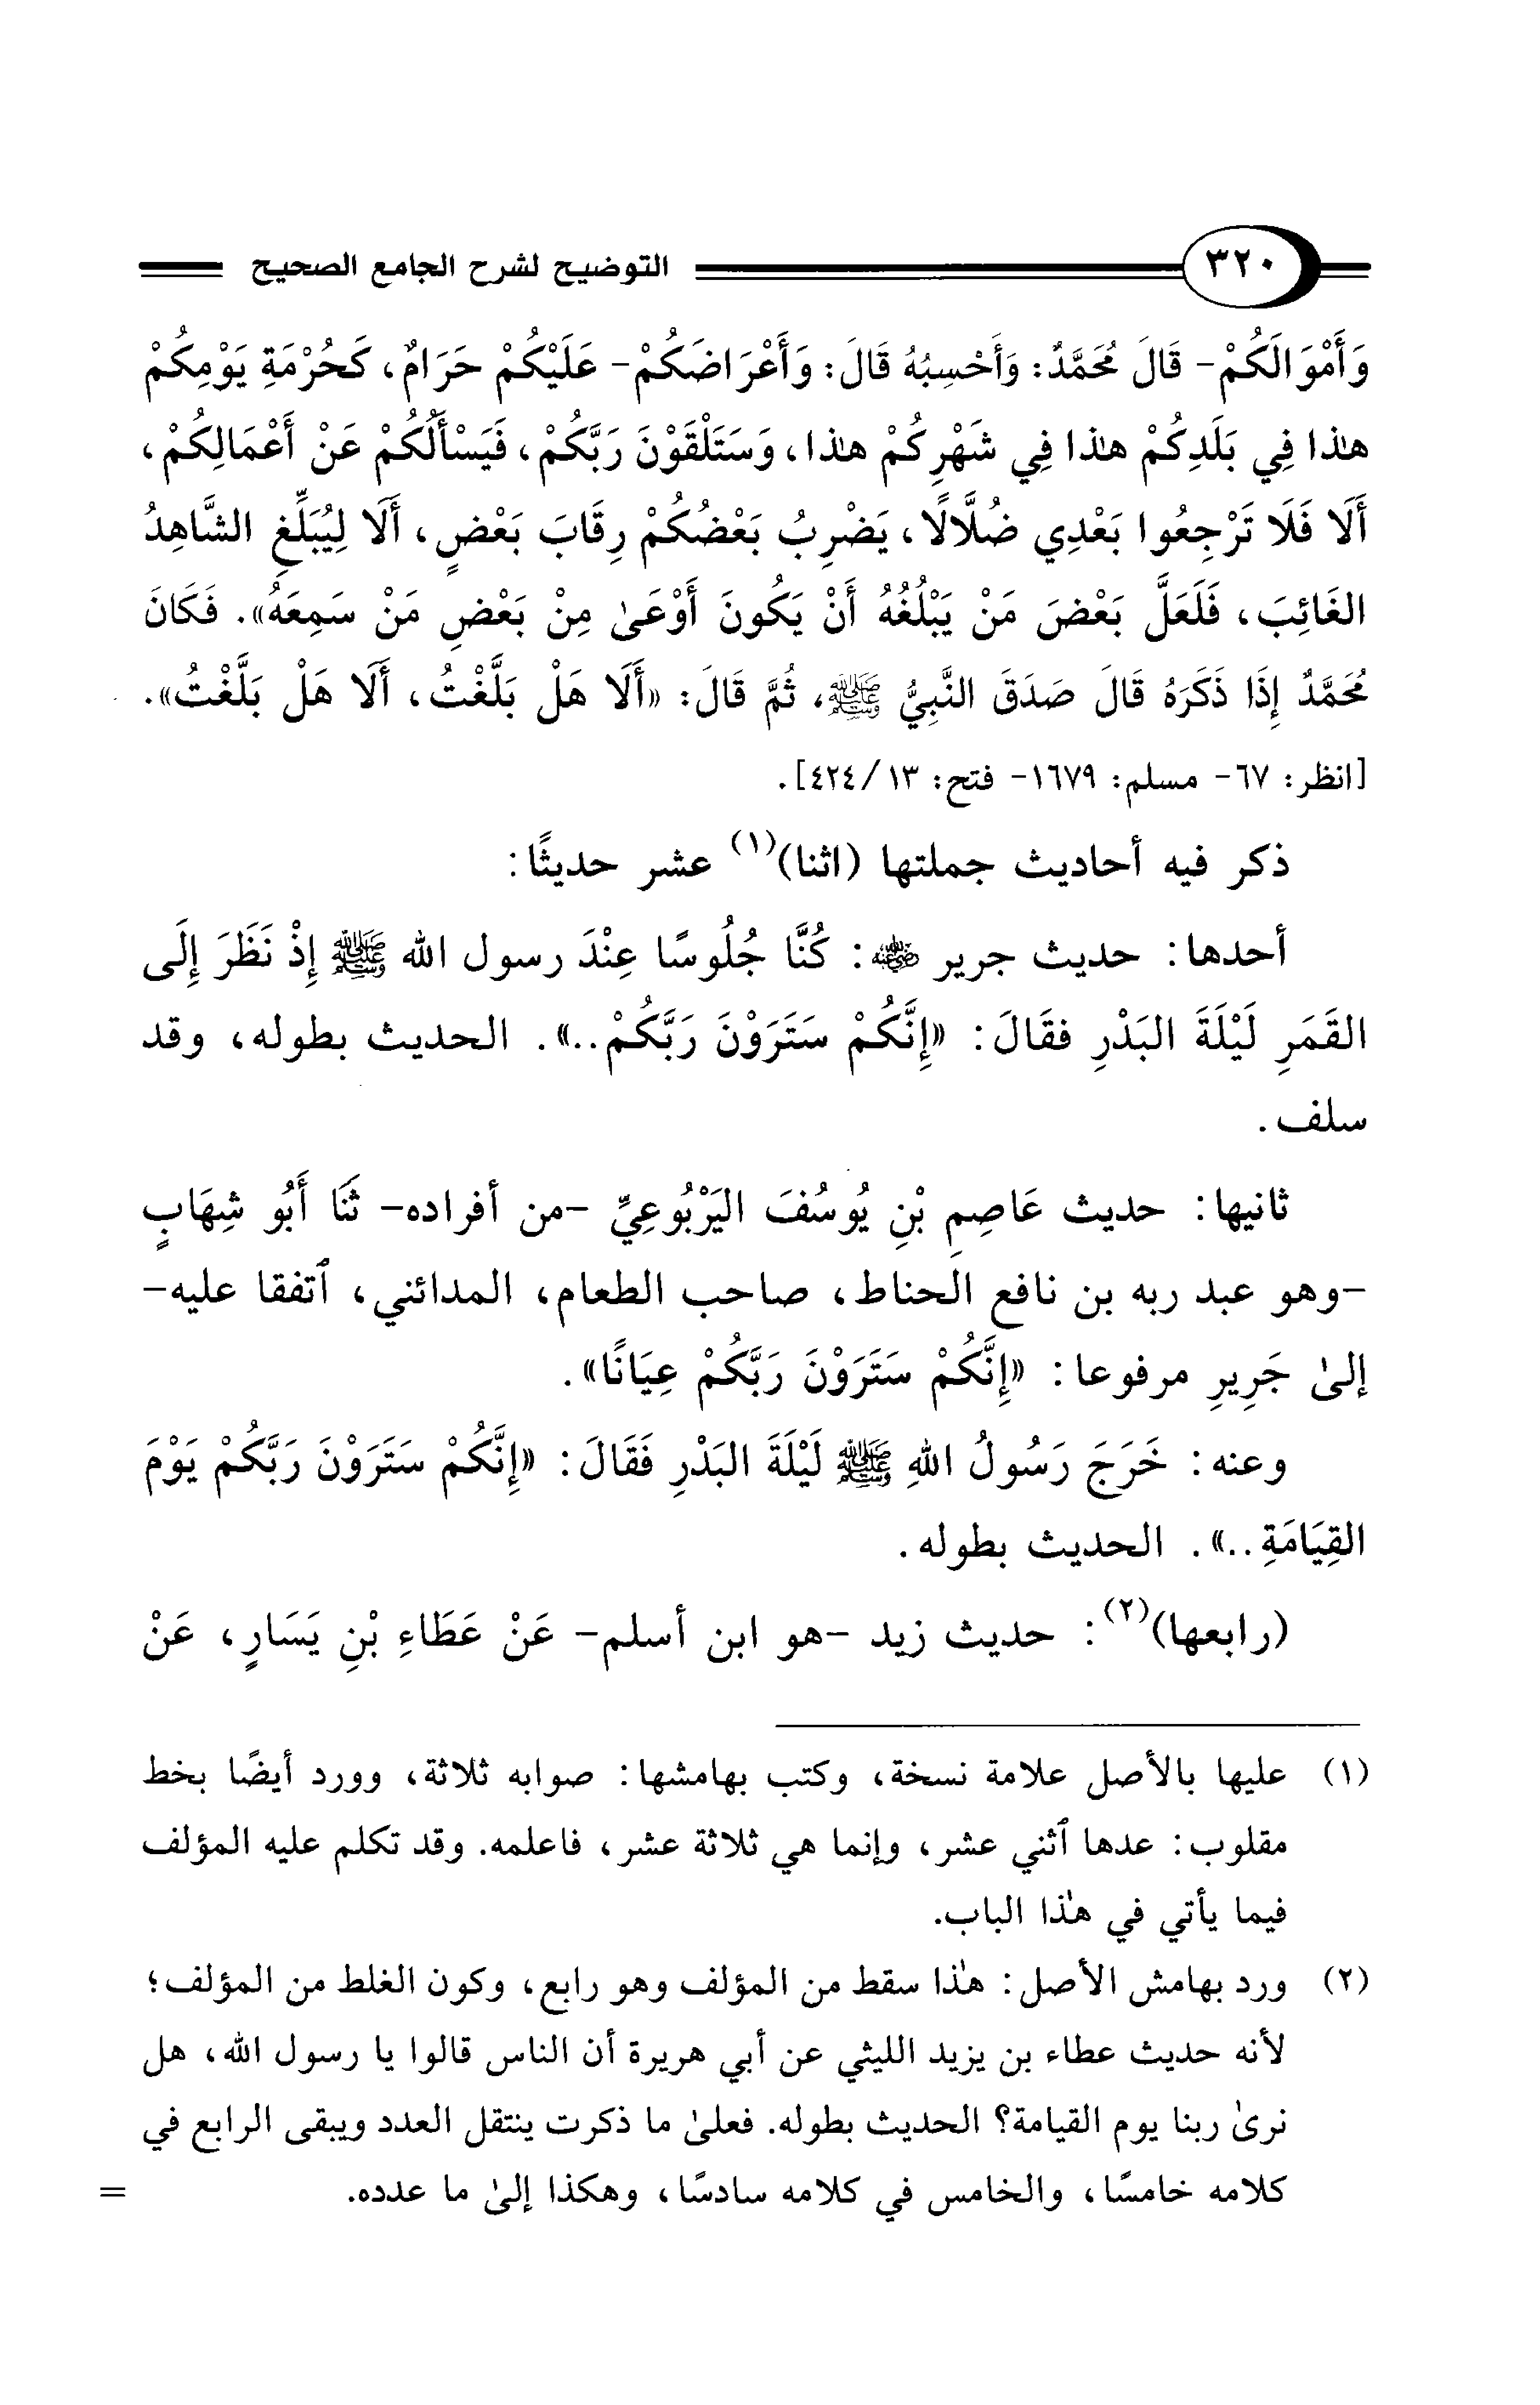 ٣٢٠ التوضيح لشرح الجامع الصحيح
وَأَمْوَالَكُمْ- قَالَ مُحَمَّدٌ: وَأَحْسِبُهُ قَالَ: وَأَعْرَاضَكُمْ- عَلَيْكُمْ حَرَامٌ، كَحُرْمَةِ يَوْمِكُمْ
هٰذا فِي بَلَدِكُمْ هٰذا فِي شَهْرِكُمْ هٰذا، وَسَتَلْقَوْنَ رَبَّكُمْ، فَيَسْأَلُكُمْ عَنْ أَعْمَالِكُمْ،
أَلَا فَلَا تَرْجِعُوا بَعْدِي ضُلَّالًا، يَضْرِبُ بَعْضُكُمْ رِقَابَ بَعْضٍ، أَلَا لِيُبَلِّغِ الشَّاهِدُ
الغَائِبَ، فَلَعَلَّ بَعْضَ مَنْ يَبْلُغُهُ أَنْ يَكُونَ أَوْعَىٰ مِنْ بَعْضِ مَنْ سَمِعَهُ». فَكَانَ
مُحَمَّدٌ إِذَا ذَكَرَهُ قَالَ صَدَقَ النَّبِيُّ ﷺ، ثُمَّ قَالَ: «أَلَا هَلْ بَلَّغْتُ، أَلَا هَلْ بَلَّغْتُ».
[انظر: ٦٧- مسلم: ١٦٧٩- فتح: ١٣/ ٤٢٤].
ذكر فيه أحاديث جملتها (اثنا)(١) عشر حديثًا:
أحدها: حديث جرير رضي الله عنه: كُنَّا جُلُوسًا عِنْدَ رسول الله ﷺ إِذْ نَظَرَ إِلَى
القَمَرِ لَيْلَةَ البَدْرِ فقَالَ: «إِنَّكُمْ سَتَرَوْنَ رَبَّكُمْ..». الحديث بطوله، وقد
سلف.
ثانيها: حديث عَاصِمِ بْنِ يُوسُفَ اليَرْبُوعِيِّ -من أفراده- ثَنَا أَبُو شِهَابٍ
-وهو عبد ربه بن نافع الحناط، صاحب الطعام، المدائني، ٱتفقا عليه-
إلىٰ جَرِيرِ مرفوعا: «إِنَّكُمْ سَتَرَوْنَ رَبَّكُمْ عِيَانًا».
وعنه: خَرَجَ رَسُولُ اللهِ ﷺ لَيْلَةَ البَدْرِ فَقَالَ: «إِنَّكُمْ سَتَرَوْنَ رَبَّكُمْ يَوْمَ
القِيَامَةِ..». الحديث بطوله.
(رابعها)(٢): حديث زيد -هو ابن أسلم- عَنْ عَطَاءِ بْنِ يَسَارٍ، عَنْ
(١) عليها بالأصل علامة نسخة، وكتب بهامشها: صوابه ثلاثة، وورد أيضًا بخط
مقلوب: عدها ٱثني عشر، وإنما هي ثلاثة عشر، فاعلمه. وقد تكلم عليه المؤلف
فيما يأتي في هٰذا الباب.
(٢) ورد بهامش الأصل: هٰذا سقط من المؤلف وهو رابع، وكون الغلط من المؤلف؛
لأنه حديث عطاء بن يزيد الليثي عن أبي هريرة أن الناس قالوا يا رسول الله، هل
نرىٰ ربنا يوم القيامة؟ الحديث بطوله. فعلىٰ ما ذكرت ينتقل العدد ويبقى الرابع في
كلامه خامسًا، والخامس في كلامه سادسًا، وهكذا إلىٰ ما عدده. =